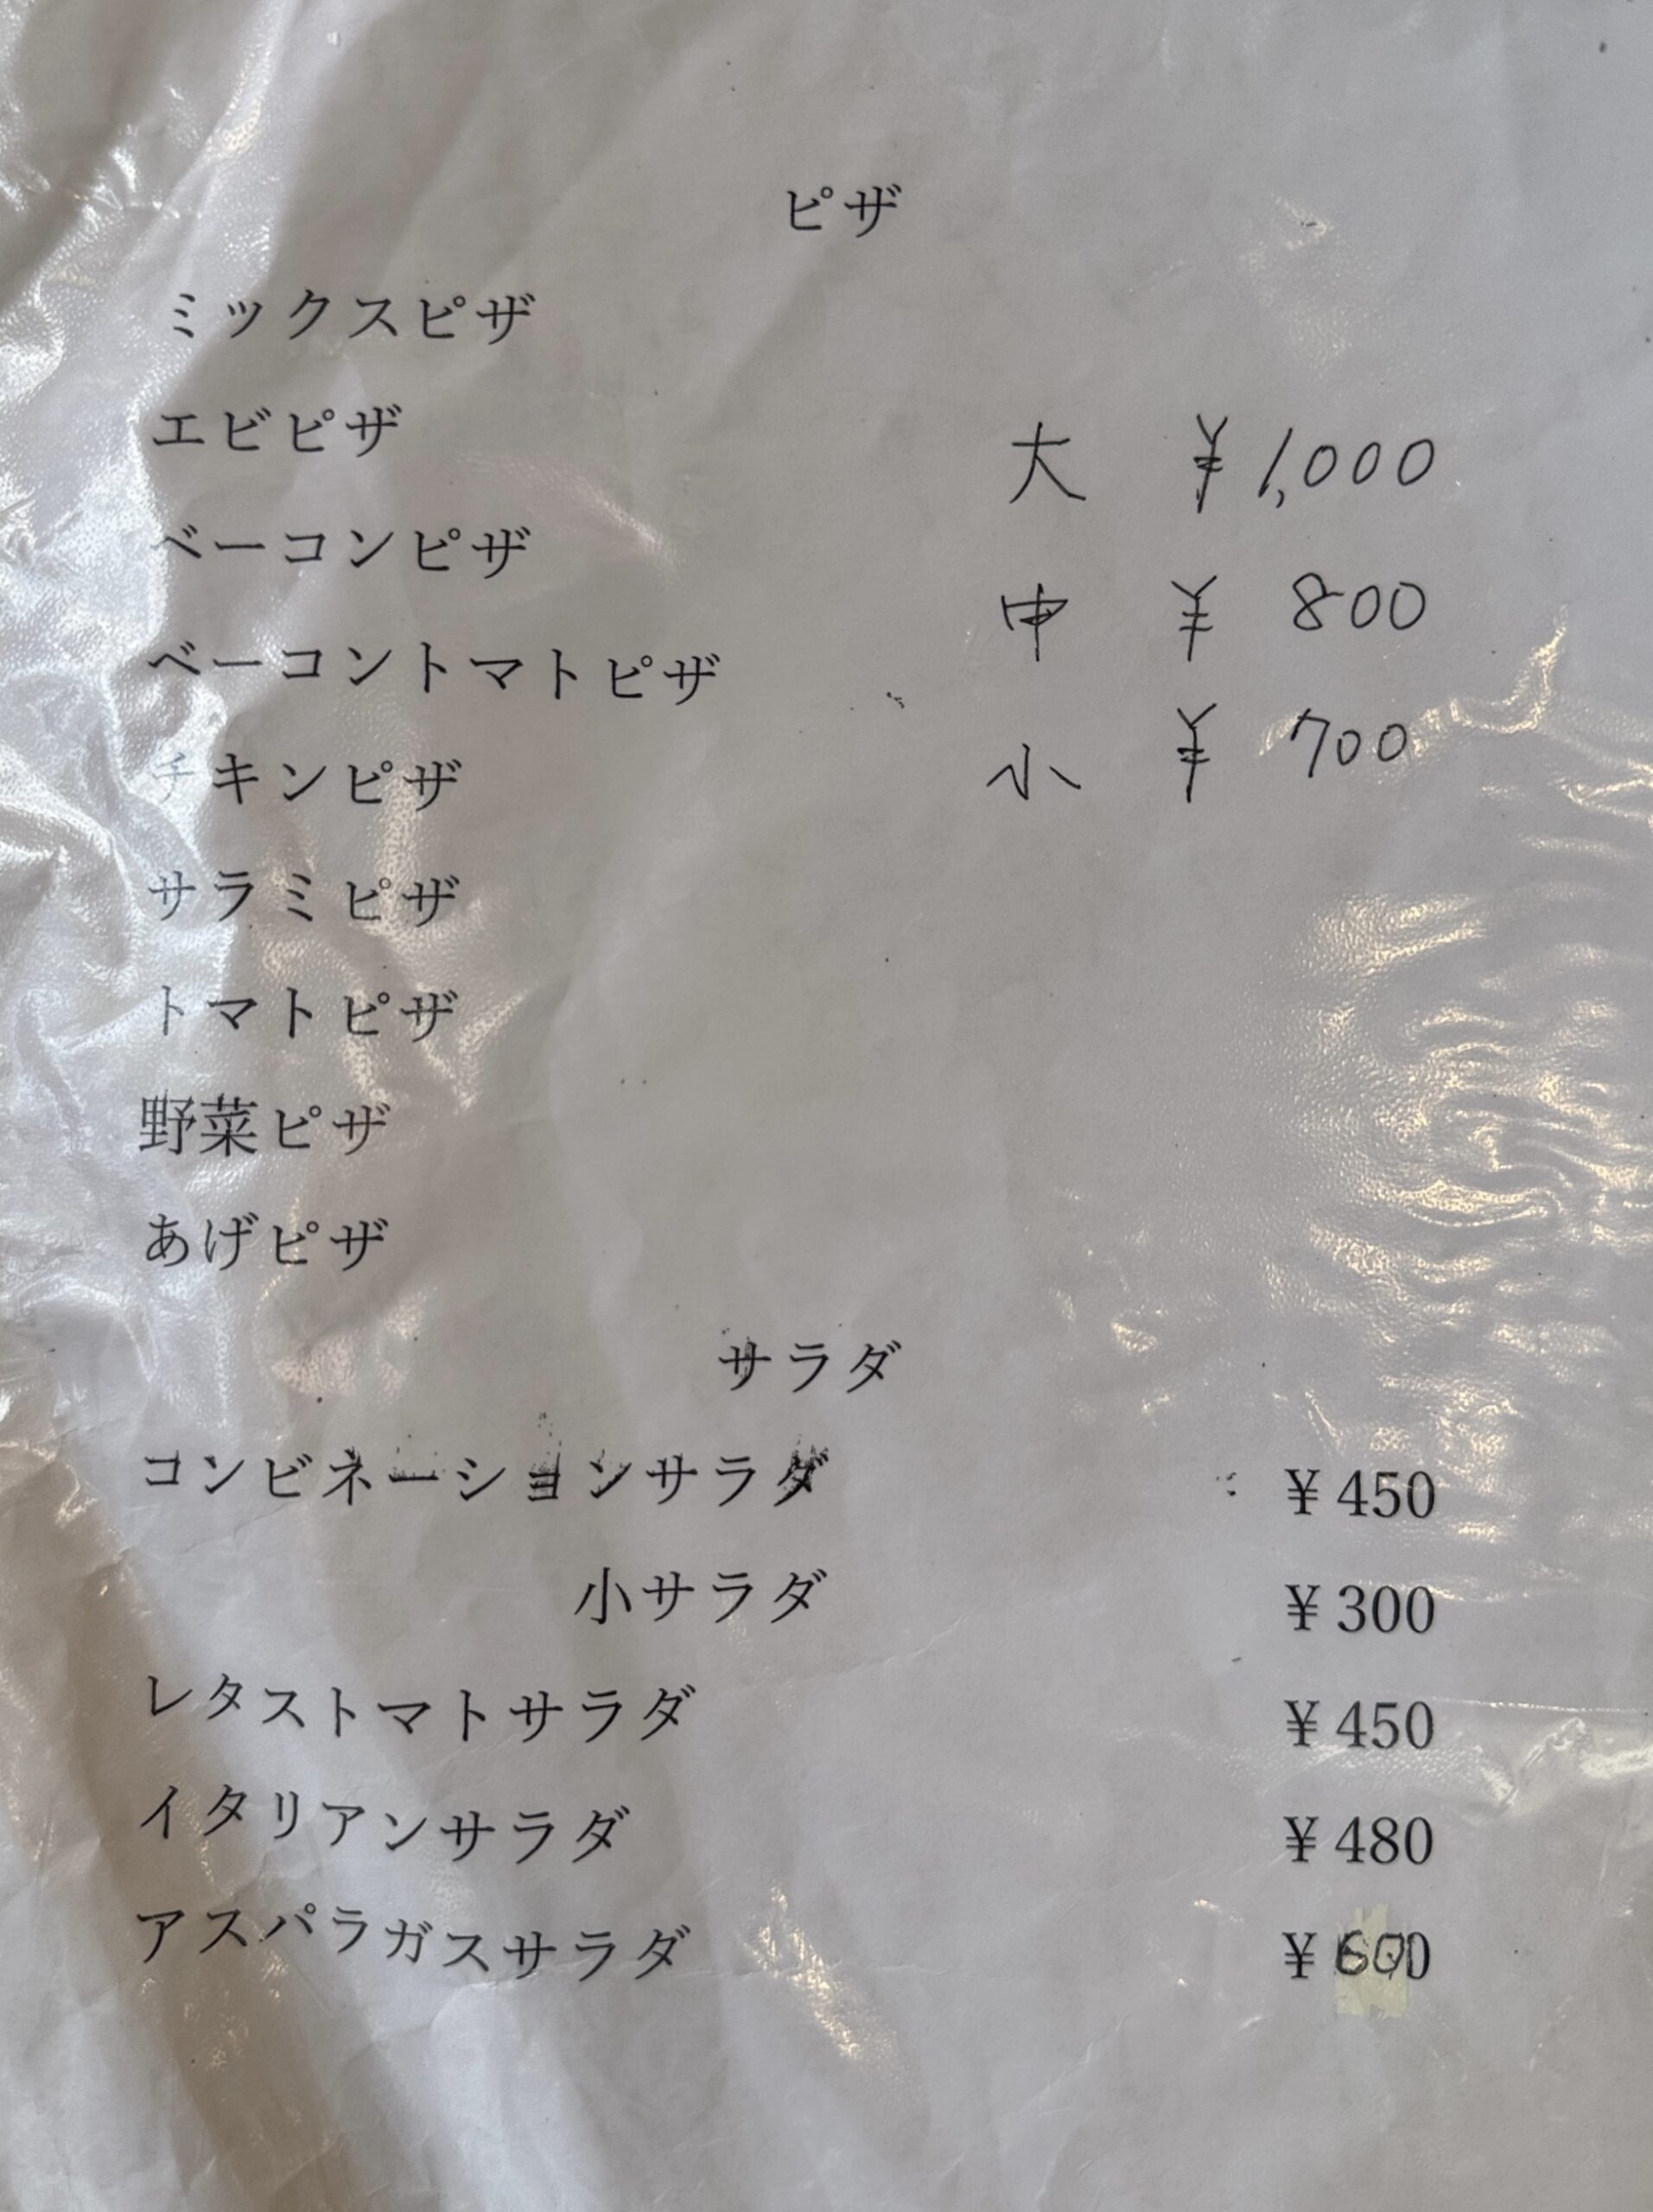 ピザ
ミックスピザ
エビピザ
大 ¥1,000
ベーコンピザ
中 ¥800
ベーコントマトピザ
小 ¥700
チキンピザ
サラミピザ
トマトピザ
野菜ピザ
あげピザ
サラダ
コンビネーションサラダ ¥450
小サラダ ¥300
レタストマトサラダ ¥450
イタリアンサラダ ¥480
アスパラガスサラダ ¥600